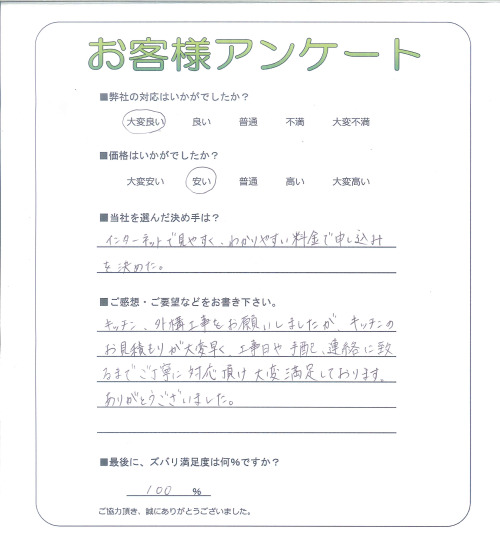 お客様アンケート
■弊社の対応はいかがでしたか？
大変良い 良い 普通 不満 大変不満
■価格はいかがでしたか？
大変安い 安い 普通 高い 大変高い
■当社を選んだ決め手は？
インターネットで見やすく、わかりやすい料金で申し込み
を決めた。
■ご感想・ご要望などをお書き下さい。
キッチン、外構工事をお願いしましたが、キッチンの
お見積もりが大変早く、工事日や手配、連絡に致
るまでご丁寧に対応頂け大変満足しております。
ありがとうございました。
■最後に、ズバリ満足度は何％ですか？
100 ％
ご協力頂き、誠にありがとうございました。